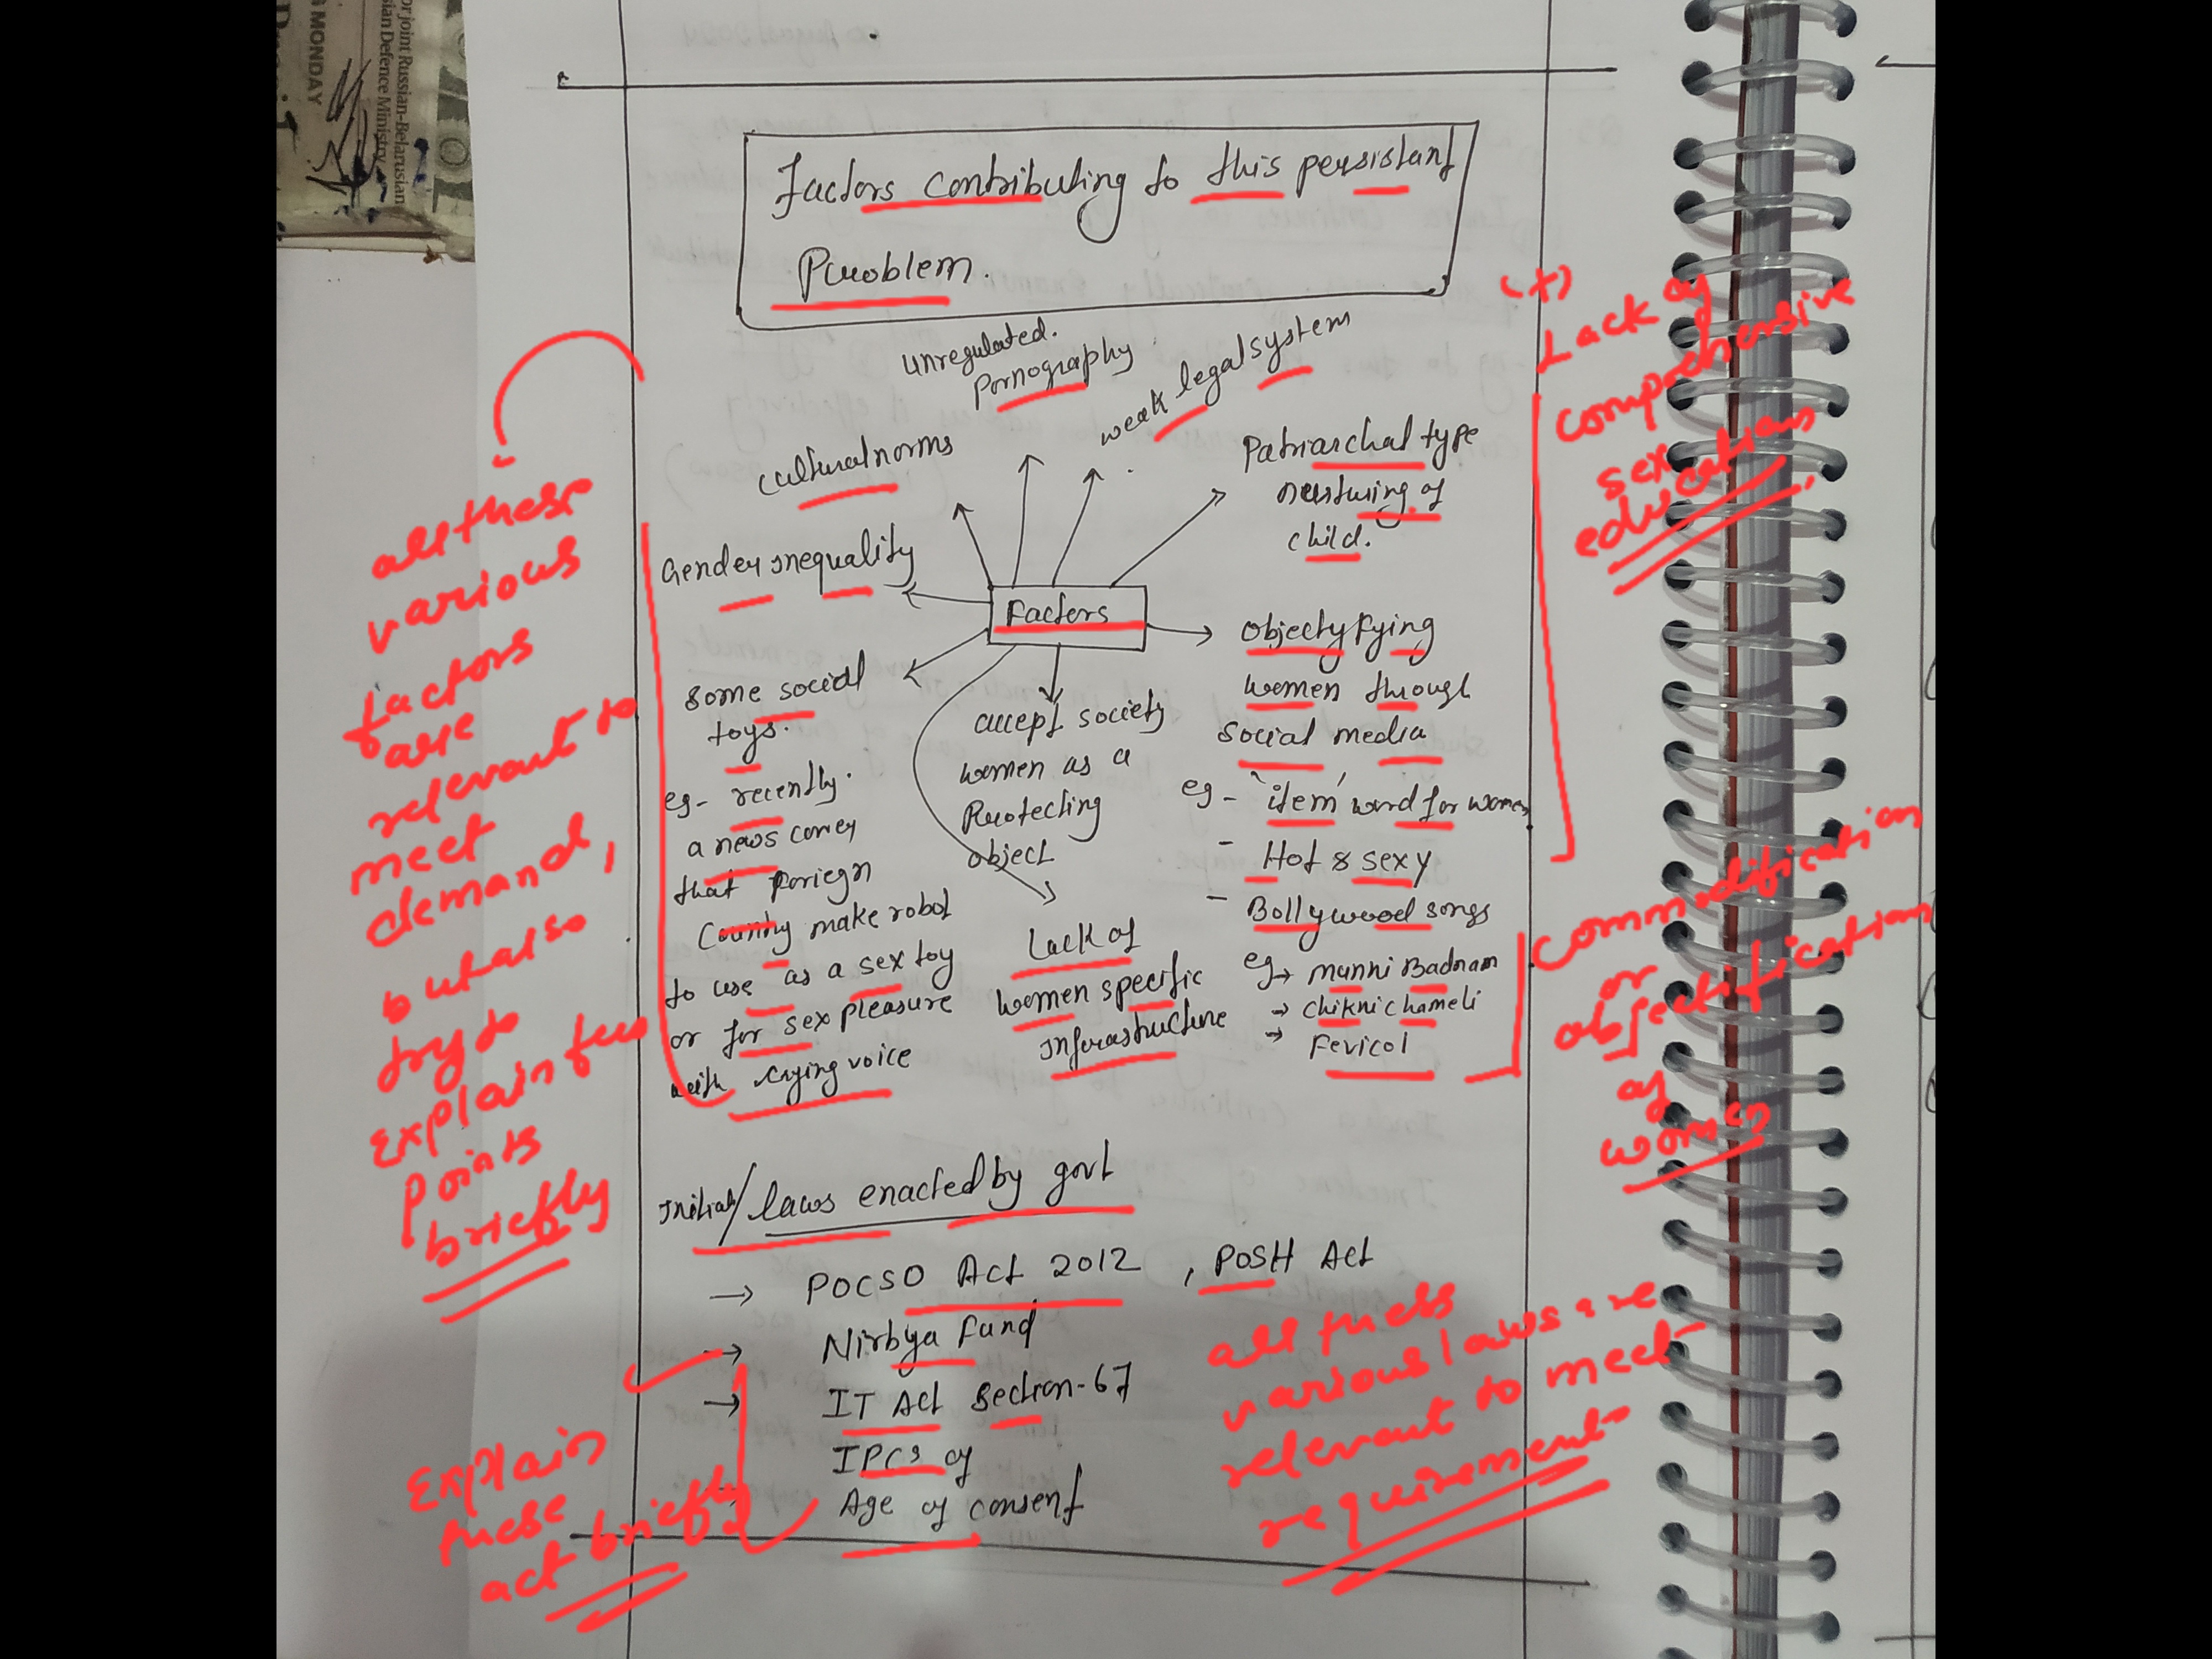 or joint Russian-Belarusian
sian Defence Ministry
MONDAY
Factors contributing to this persistant
Pruoblem.
unregulated.
Pornography
weak legal system
cultural norms
Patriarchal type
nursturing of
child.
Gender inequality
Factors
Objectyfying
women through
social media
eg - 'item' word for women
- Hot & sexy
- Bollywood songs
eg → munni Badnam
→ chikni chameli
→ Fevicol
some social
toys.
eg- recently.
a news
that foriegn
Country make robot
to use as a sex toy
or for sex pleasure
with crying voice
accept society
women as a
Pruotecting
object
Lack of
women specific
infrastructure
/ laws enacted by govt
→ POCSO Act 2012 , POSH Act
→ Nirbya Fund
→ IT Act Section-67
IPCs of
Age of consent
all these
various
factors
are
relevant to
meet
demand,
but also
try to
explain few
points
briefly
(+)
Lack of
comprehensive
sex
educations
commodification
or
objectification
of
women
all thess
various laws are
relevant to meet
requirement
Explain
these
act briefly